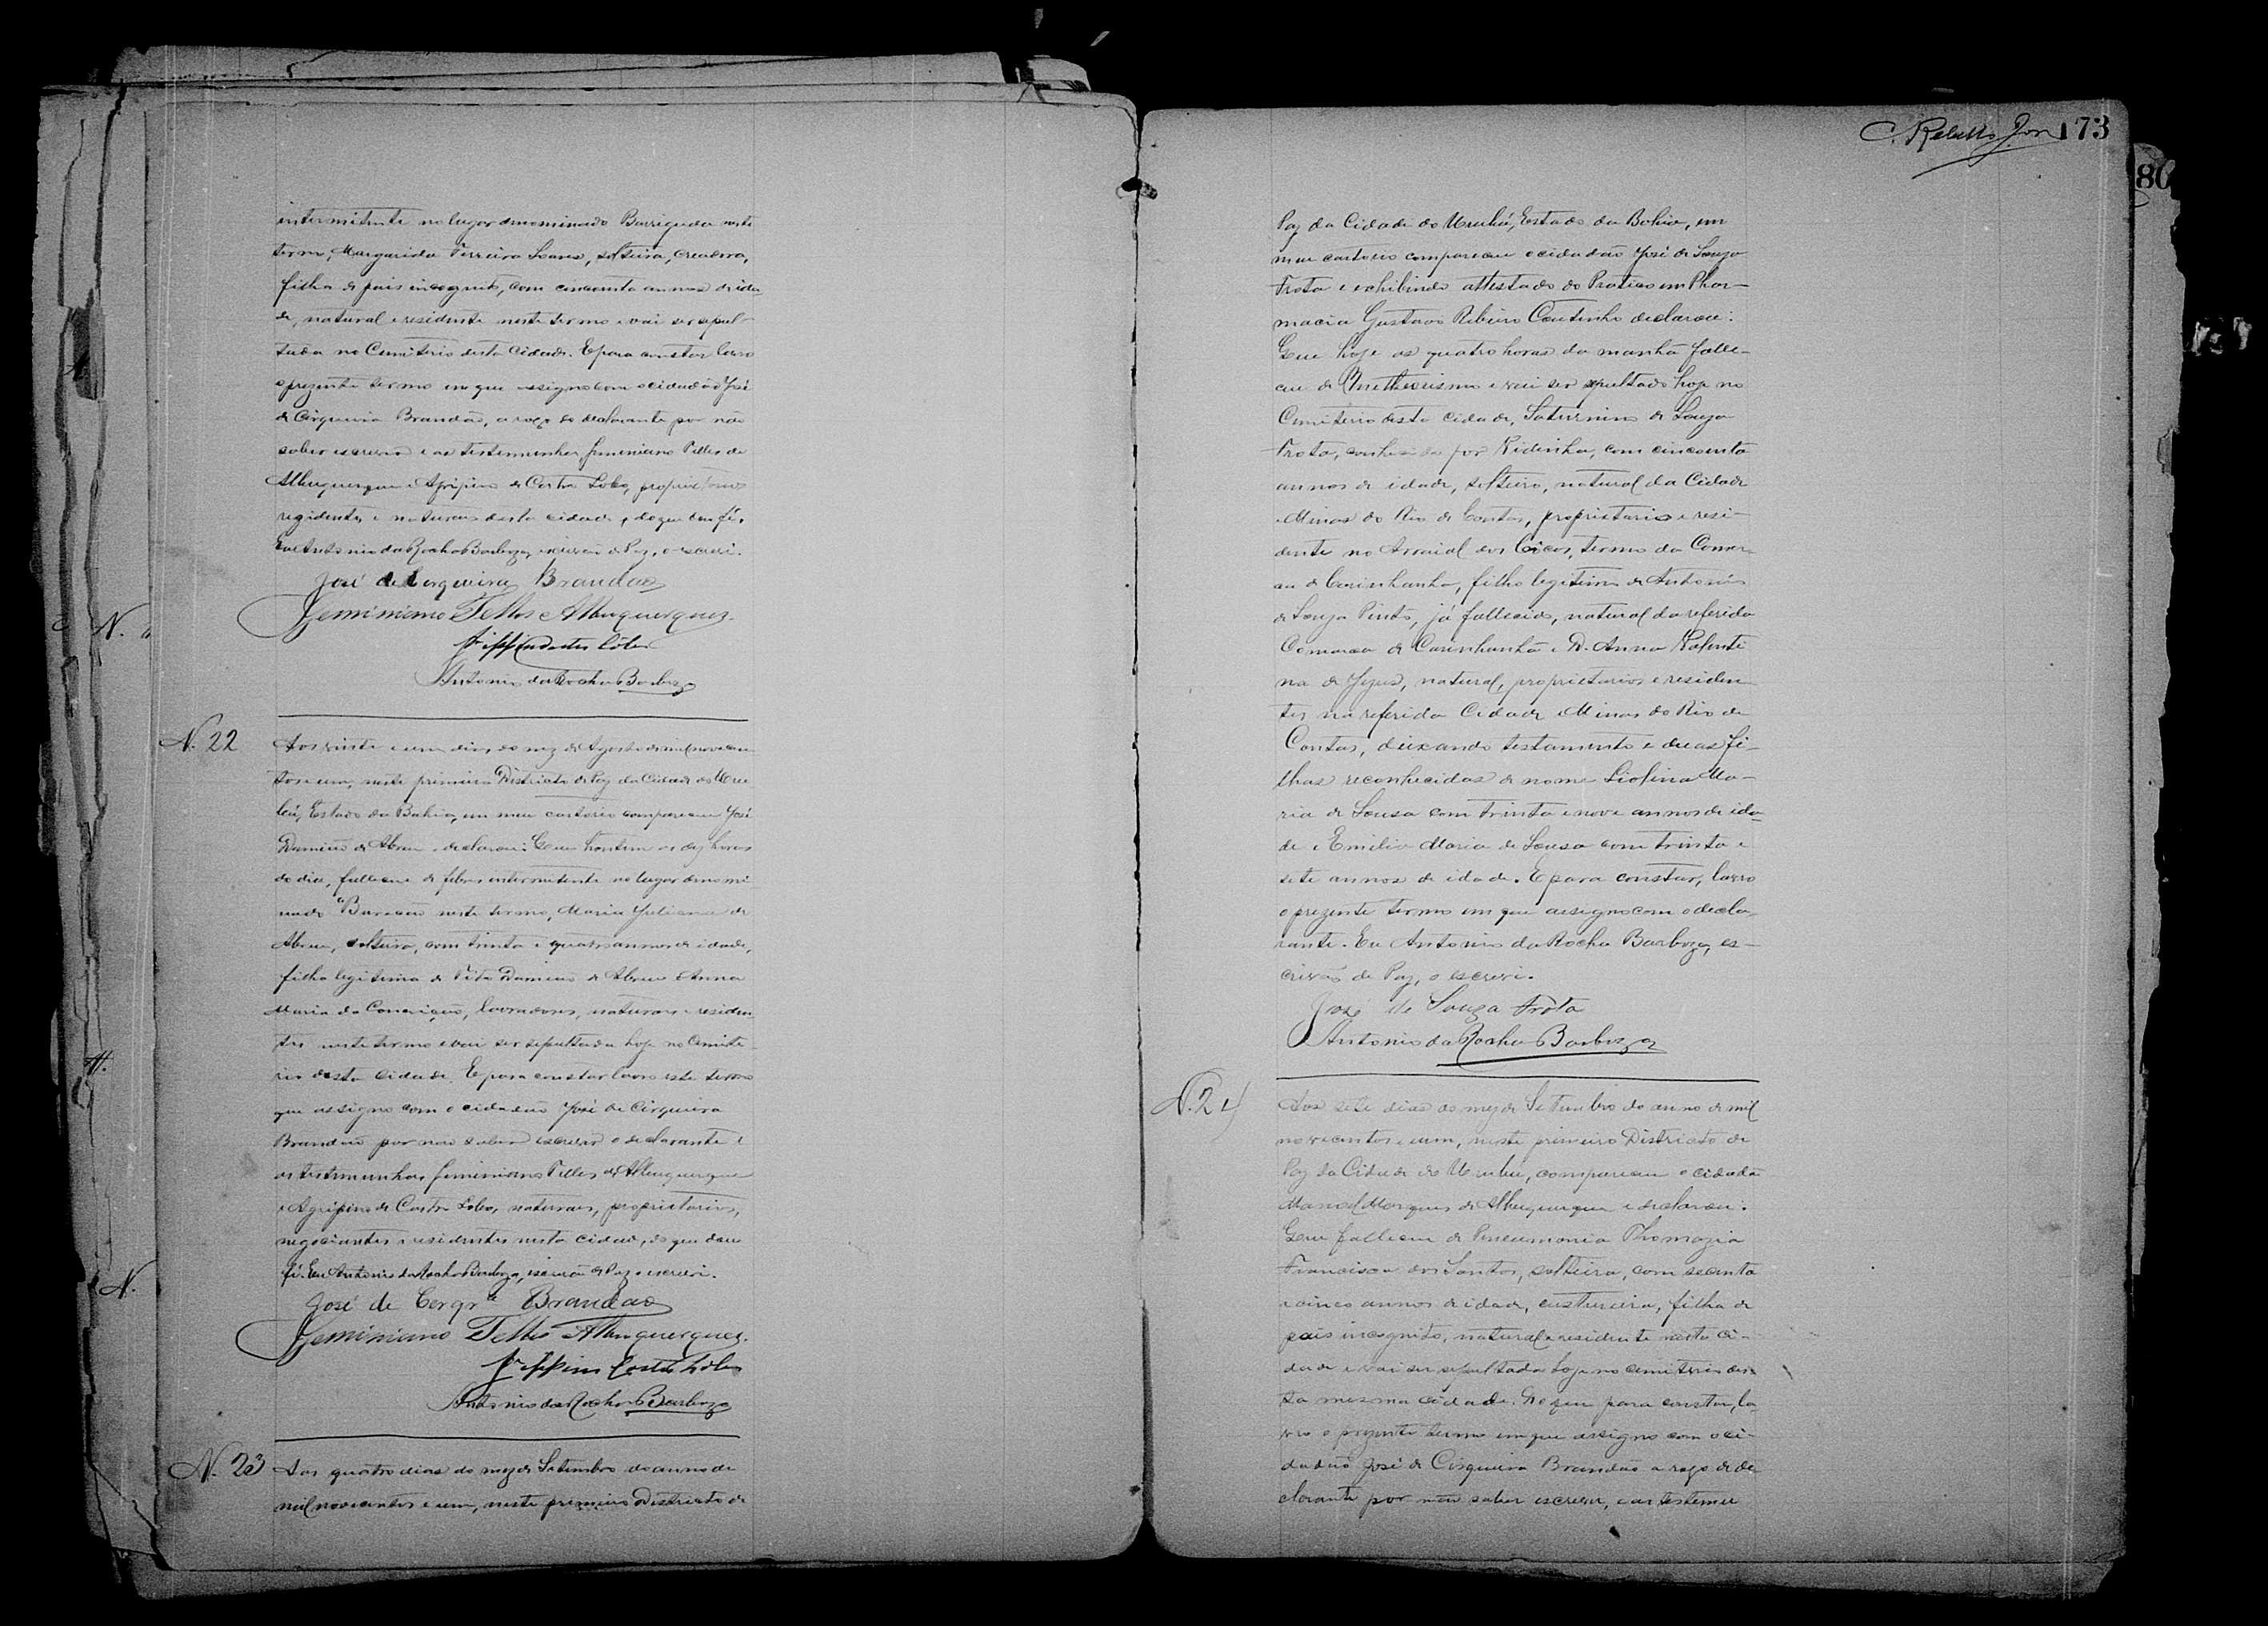 intermitente no lugar denominado Barriguda neste
termo, Margarida Ferreira Soares, solteira, creadora,
filha de pais incognitos, com cincoenta annos de ida-
de, natural e residente neste termo e vai ser sepul-
tada no Cemiterio desta Cidade. E para constar lavro
o prezente termo em que assigno com o cidadão José
de Cirqueira Brandão, a rogo do declarante por não
saber escrever e as testemunhas Geminiano Telles de
Albuquerque e Agripino de Castro Lobo, proprietarios
rezidentes e naturaes desta cidade, do que dou fé.
Eu Antonio da Rocha Barboza, escrivão de Paz, o escrevi.
José de Cerqueira Brandao
Geminiano Telles e Albuquerques.
Antonio da Rocha Barboza
N. 22
Aos vinte e um dias do mez de Agosto de mil novecen
tos e um, neste primeiro Districto de Paz da Cidade do Uru
bú, Estado da Bahia, em meu cartorio compareceu José
Damião de Abreu e declarou: Que hontem as dez horas
do dia, falleceu de febre intermitente no lugar denomi
nado neste termo, Maria Juliana de
Abreu, solteira, com trinta e quatro annos de idade,
filha legitima de Damião de Abreu e Anna
Maria da Conceição, lavradores, naturaes e residen-
tes neste termo e vai ser sepultada hoje no Cemite-
rio desta cidade. E para constar lavro este termo
que assigno com o cidadão José de Cirqueira
Brandão por não saber escrever o declarante e
as testemunhas Geminiano Telles de Albuquerque
e Agripino de Castro Lobo, naturaes, proprietarios,
negociantes e residentes nesta cidade, do que dou
fé. Eu Antonio da Rocha Barboza, escrivão de Paz o escrevi.
José de Cerqrª Brandao
Geminiano Telles Albuquerques.
Antonio da Rocha Barboza
N. 23
Aos quatro dias do mez de Setembro do anno de
mil novecentos e um, neste primeiro Districto de
173
80
Paz da Cidade do Urubú, Estado da Bahia, em
meu cartorio compareceu o cidadão José de Souza
Trota e exhibindo attestado do Pratico em Phar-
macia Gustavo Ribeiro Coutinho declarou:
Que hoje as quatro horas da manhã falle-
ceu de e vai ser sepultado hoje no
Cemiterio desta cidade, Saturnino de Souza
Trota, conhecido por com cincoenta
annos de idade, solteiro, natural da Cidade
Minas do Rio de Contas, proprietario e resi-
dente no Arraial dos Côcos, termo da Comar-
ca de Carinhanha, filho legitimo de Antonio
de Souza Pinto, já fallecido, natural da referida
Comarca de Carinhanha e D. Anna
na de Jezus, natural, proprietarios e residen
tes na referida Cidade Minas do Rio de
Contas, deixando testamento e duas fi-
lhas reconhecidas de nome Liofina Ma-
ria de Sousa com trinta e nove annos de ida-
de e Emilia Maria de Sousa com trinta e
sete annos de idade. E para constar, lavro
o prezente termo em que assigno com o decla-
rante. Eu Antonio da Rocha Barboza, es-
crivão de Paz, o escrevi.
José de Souza Trota
Antonio da Rocha Barboza
N. 24
Aos sete dias do mez de Setembro do anno de mil
novecentos e um, neste primeiro Districto de
Paz da Cidade do Urubú, compareceu o cidadão
Manoel Marques de Albuquerque e declarou:
Que falleceu de Pneumonia Thomazia
Francisca dos Santos, solteira, com secenta
e cinco annos de idade, custureira, filha de
pais incognito, natural e residente nesta ci-
dade e vai ser sepultada hoje no cemiterio des-
ta mesma cidade. Do que para constar, la-
vro o prezente termo em que assigno com o ci-
dadão José de Cirqueira Brandão a rogo do de
clarante por não saber escrever, e as testemu